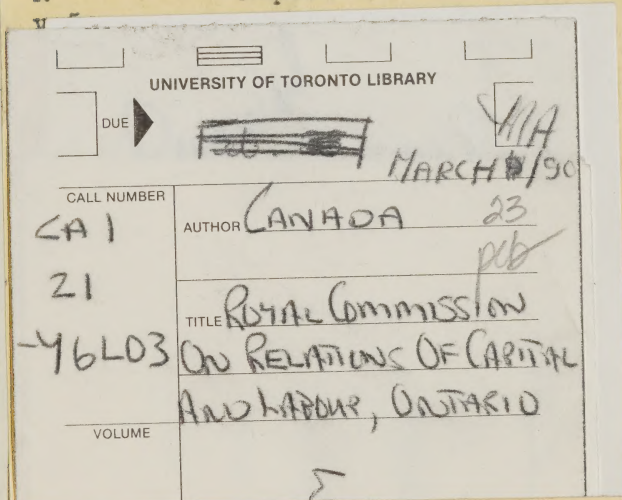 UNIVERSITY OF TORONTO LIBRARY
DUE
MARCH /90
23
pcb
CALL NUMBER
CA 1
Z1
-46L03
AUTHOR CANADA
TITLE ROYAL COMMISSION
ON RELATIONS OF CAPITAL
AND LABOUR, ONTARIO
VOLUME